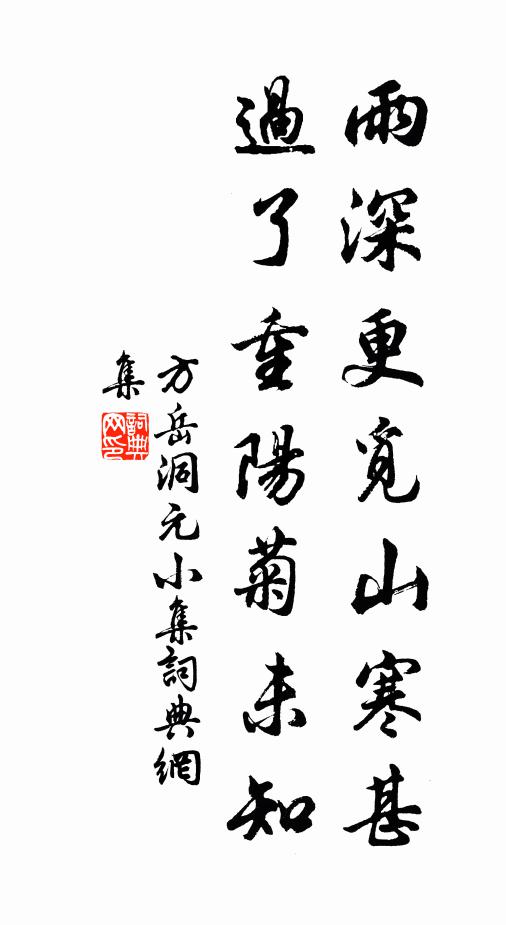 雨深更覓山寒甚
過了重陽菊未知
方岳洞元小集詞典網
集
詞典
网印